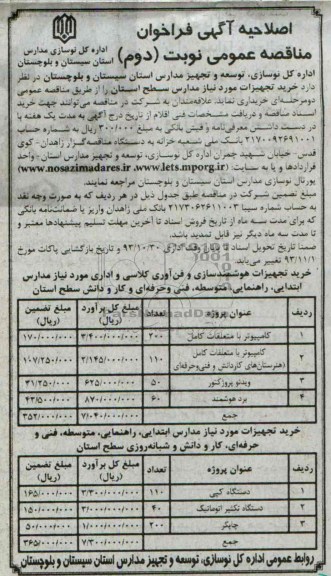 اصلاحیه آگهی فراخوان
مناقصه عمومی نوبت (دوم)
اداره کل نوسازی مدارس
استان سیستان و بلوچستان
اداره کل نوسازی، توسعه و تجهیز مدارس استان سیستان و بلوچستان در نظر
دارد خرید تجهیزات مورد نیاز مدارس سطح استان را از طریق مناقصه عمومی
دومرحله‌ای خریداری نماید. علاقه‌مندان به شرکت در مناقصه می‌توانند جهت خرید
اسناد مناقصه و دریافت مشخصات فنی اقلام از تاریخ درج آگهی به مدت یک هفته با
در دست داشتن معرفی‌نامه و فیش بانکی به مبلغ ۳۰۰/۰۰۰ ریال به شماره حساب
۲۱۷۰۰۹۲۶۹۱۰۰۱ بانک ملی شعبه خزانه به دستگاه مناقصه‌گزار زاهدان - کوی
قدس- خیابان شهید چمران اداره کل نوسازی، توسعه و تجهیز مدارس استان - واحد
قراردادها و یا به سایت (www.nosazimadares.ir، www.iets.mporg.ir)
پورتال نوسازی مدارس استان سیستان و بلوچستان مراجعه نمایند.
مبلغ تضمین شرکت در مناقصه طبق جدول ذیل در هر ردیف که به صورت وجه نقد
به حساب شماره سیبا ۲۱۷۳۰۶۲۶۱۱۰۰۴ بانک ملی زاهدان واریز یا ضمانت‌نامه بانکی
که برای مدت سه ماه از تاریخ فروش اسناد تا آخرین مهلت تسلیم پیشنهادها معتبر و
تا مدت سه ماه دیگر نیز قابل تمدید باشد.
ضمناً تاریخ تحویل اسناد تا پایان وقت اداری ۹۳/۱۰/۳۰ و تاریخ بازگشایی پاکات مورخ
۹۳/۱۱/۱ تغییر می‌یابد.
خرید تجهیزات هوشمندسازی و فن‌آوری کلاسی و اداری مورد نیاز مدارس
ابتدایی، راهنمایی، متوسطه، فنی وحرفه‌ای و کار و دانش سطح استان
ردیف عنوان پروژه تعداد مبلغ کل برآورد (ریال) مبلغ تضمین (ریال)
۱ کامپیوتر با متعلقات کامل ۲۰۰ ۳/۴۰۰/۰۰۰/۰۰۰ ۱۷۰/۰۰۰/۰۰۰
۲ کامپیوتر با متعلقات کامل (هنرستان‌های کاردانش و فنی‌وحرفه‌ای) ۱۱۰ ۲/۱۴۵/۰۰۰/۰۰۰ ۱۰۷/۲۵۰/۰۰۰
۳ ویدئو پروژکتور ۵۰ ۶۲۵/۰۰۰/۰۰۰ ۳۱/۲۵۰/۰۰۰
۴ برد هوشمند ۶۰ ۸۷۰/۰۰۰/۰۰۰ ۴۳/۵۰۰/۰۰۰
جمع ۷/۰۴۰/۰۰۰/۰۰۰ ۳۵۲/۰۰۰/۰۰۰
خرید تجهیزات مورد نیاز مدارس ابتدایی، راهنمایی، متوسطه، فنی و
حرفه‌ای، کار و دانش و شبانه‌روزی سطح استان
ردیف عنوان پروژه تعداد مبلغ کل برآورد (ریال) مبلغ تضمین (ریال)
۱ دستگاه کپی ۱۱۰ ۳/۳۰۰/۰۰۰/۰۰۰ ۱۶۵/۰۰۰/۰۰۰
۲ دستگاه تکثیر اتوماتیک ۴۰ ۳/۰۰۰/۰۰۰/۰۰۰ ۱۵۰/۰۰۰/۰۰۰
۳ چاپگر ۲۰۰ ۱/۰۰۰/۰۰۰/۰۰۰ ۵۰/۰۰۰/۰۰۰
جمع ۷/۳۰۰/۰۰۰/۰۰۰ ۳۶۵/۰۰۰/۰۰۰
روابط عمومی اداره کل نوسازی، توسعه و تجهیز مدارس استان سیستان و بلوچستان